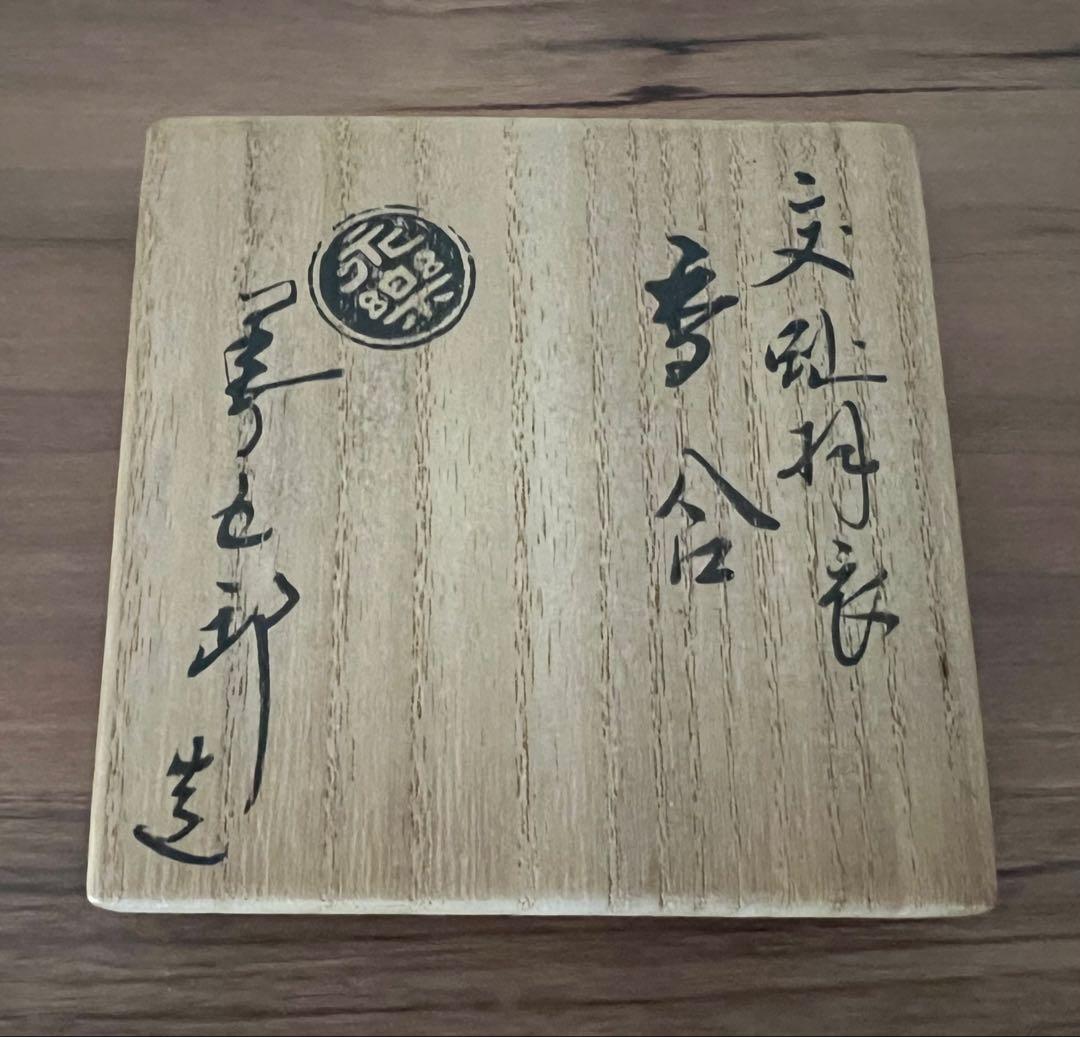 交趾羽衣
香合
永樂
善五郎
造